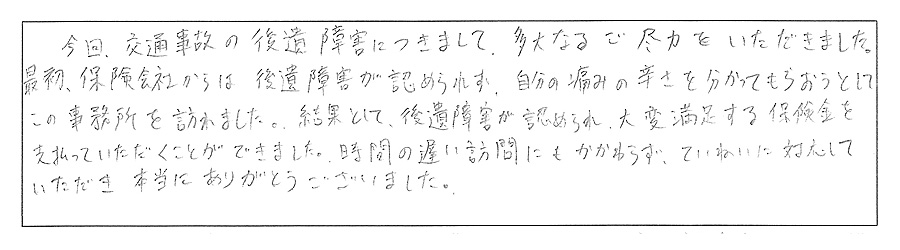 今回、交通事故の後遺障害につきまして、多大なるご尽力をいただきました。
最初、保険会社からは後遺障害が認められず、自分の痛みの辛さを分かってもらおうとして
この事務所を訪れました。結果として、後遺障害が認められ、大変満足する保険金を
支払っていただくことができました。時間の遅い訪問にもかかわらず、ていねいに対応して
いただき本当にありがとうございました。